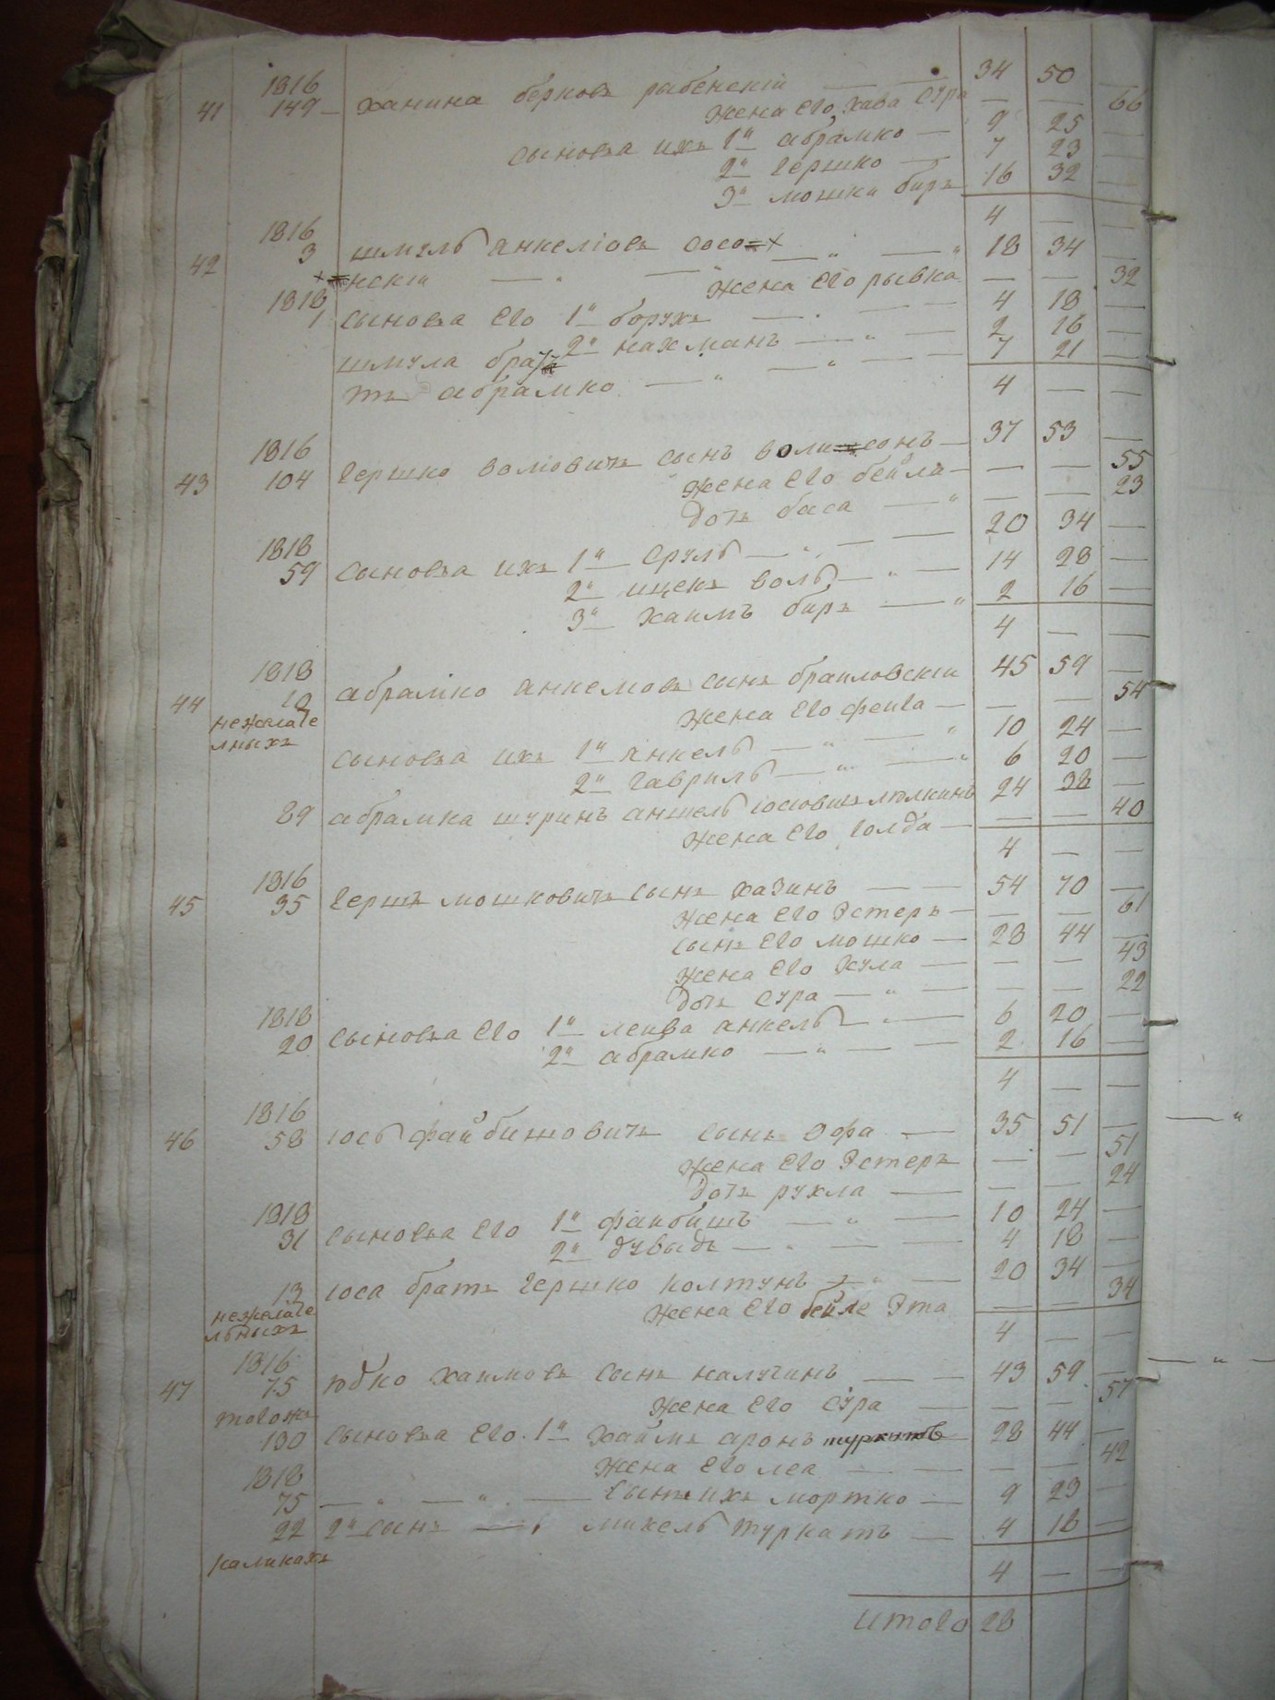 1816
41 149 – ханина берковъ рабенскій — — 34 50 —
жена его хава сура — — 66
сыновья ихъ 1й абрамко — 9 25 —
2й гершко — 7 23 —
3й мошка биръ 16 32 —
4 —
1816
42 3 шмуль янкеліовъ сосон — „ — „ 18 34 —
нскій — „ — жена его рывка — — 32
1818
1 сыновья его 1й борухъ — . — — 4 18 —
2й нахманъ — „ — 2 16 —
шмула бра — „ — — 7 21 —
тъ абрамко — „ — „
4 — —
1816
43 104 гершко волковичъ сынъ — 37 53 —
жена его бейла — — — 55
дочъ баса — „ — — 23
1818
59 сыновья ихъ 1й сруль — „ — — 20 34 —
2й ицекъ воль — „ — 14 28 —
3й хаимъ биръ — „ 2 16 —
4 — —
1818
44 10 абрамко янкелювъ сынъ браиловскій 45 59 —
нежелате
льныхъ
жена его фейга — — — 54
сыновья ихъ 1й янкель — „ — „ 10 24 —
2й гавриль — „ — „ 6 20 —
89 абрамка шуринъ аншель іосіовичъ 24 38 —
жена его голда — — — 40
4 — —
1816
45 35 гершъ мошковичъ сынъ хазинъ — — 54 70 —
жена его эстеръ — — — 61
сынъ его мошко — 28 44 —
жена его хула — — — 43
дочъ сура — „ — — — 22
1818
20 сыновья его 1й лейва янкель — . — 6 20 —
2й абрамко — „ — — 2 16 —
4 — —
1816
46 58 іось файбишовичъ сынъ эфа — 35 51 —
жена его эстеръ — — 51
дочъ рухла — — — 24
1818
31 сыновья его 1й файбишъ — „ — 10 24 —
2й дувыдъ — . — — 4 18 —
13 іоса братъ гершко колтунъ — „ — 20 34 —
нежелате
льныхъ
жена его бейле эта — — 34
4 — —
1816
47 75 юдко хаимовъ сынъ калугинъ — — 43 59 —
жена его сура — — — 57
того жъ
130 сыновья его 1й хаимъ аронъ туркатъ 28 44 —
жена его леа — — — — 42
1818
75 — „ — „ . — сынъ ихъ мортко — 9 23 —
22 2й сынъ — „ микель туркатъ — 4 18 —
каликахъ
4 — —
итого 28